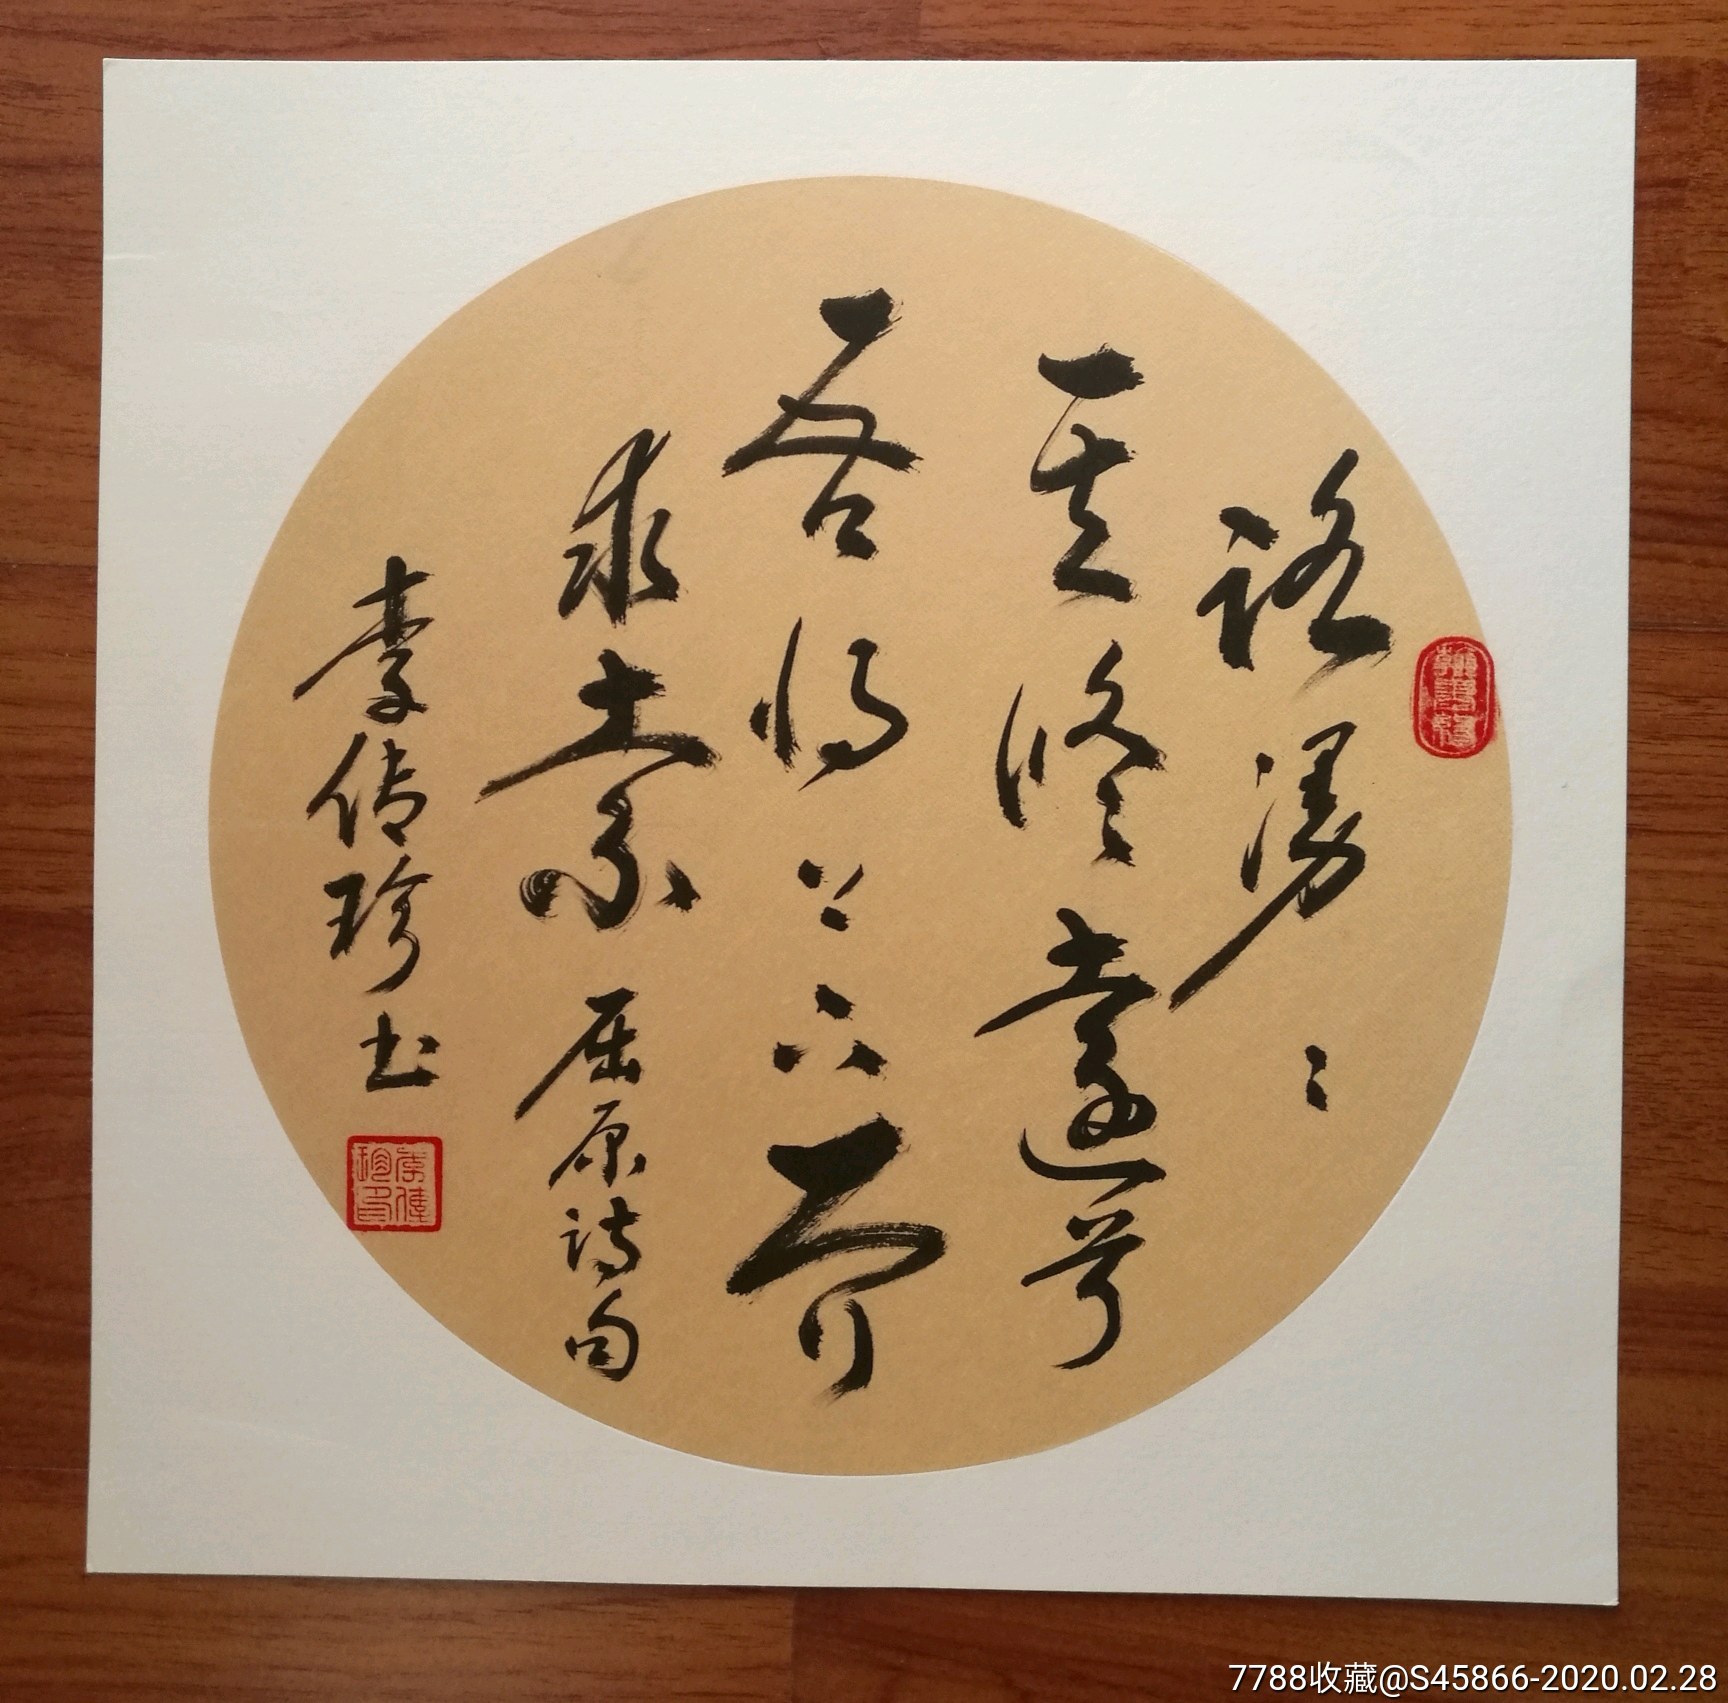 路漫〻
其修遠兮
吾将上下而
求索 屈原詩句
李传珍书
李傳珍印
7788收藏@S45866-2020.02.28